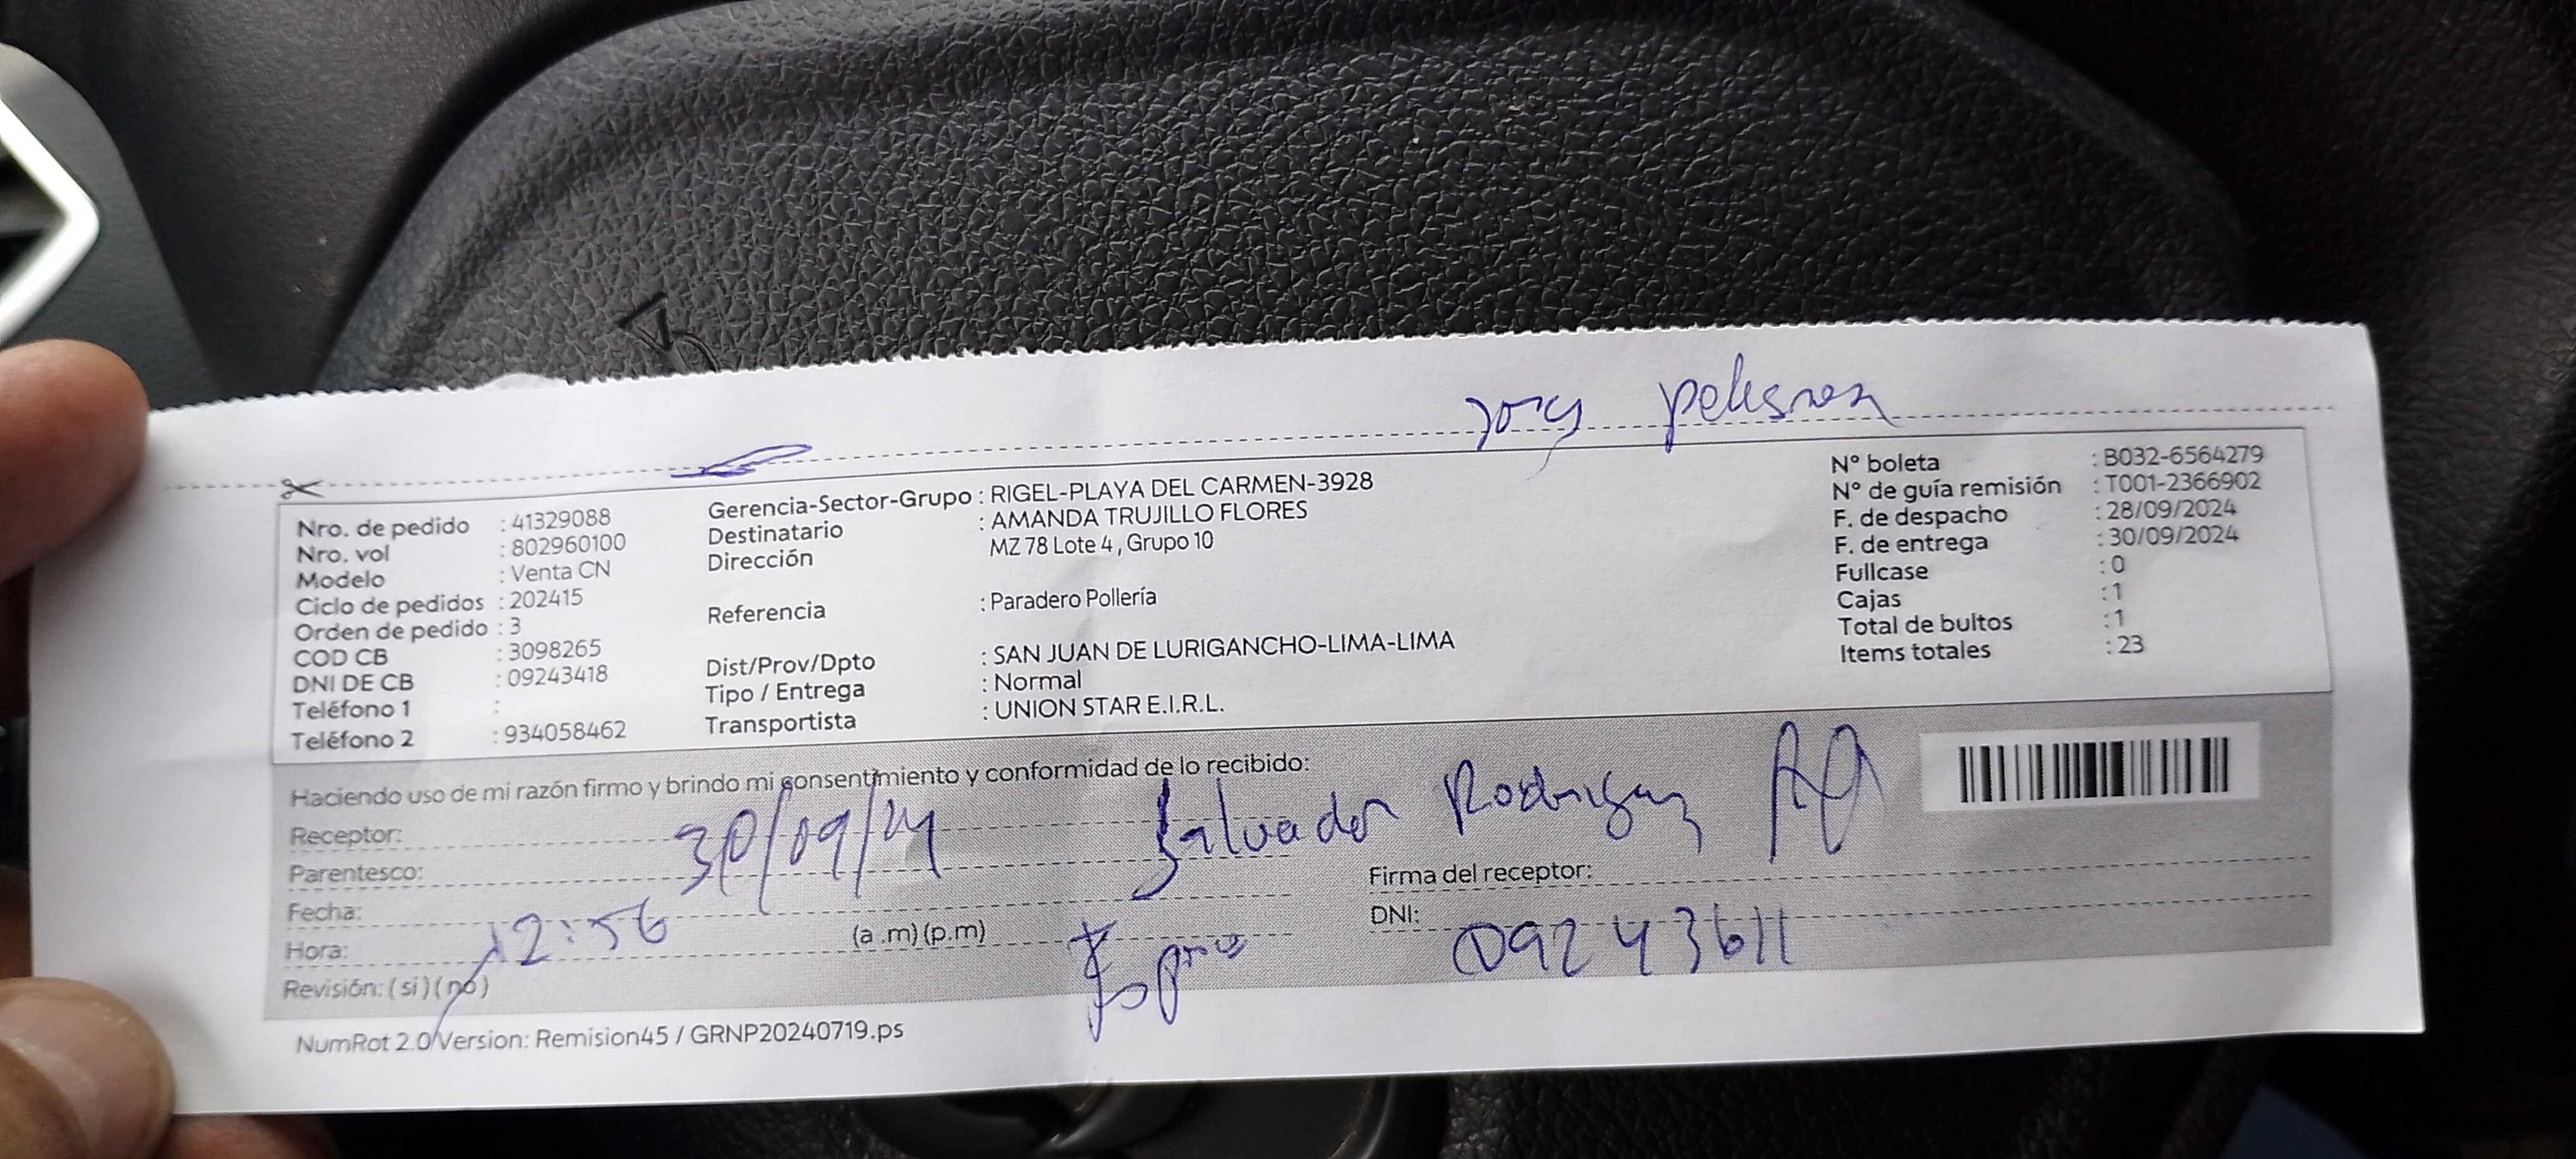 Nro. de pedido : 41329088
Nro. vol : 802960100
Modelo : Venta CN
Ciclo de pedidos : 202415
Orden de pedido : 3
COD CB : 3098265
DNI DE CB : 09243418
Teléfono 1 :
Teléfono 2 : 934058462
Gerencia-Sector-Grupo : RIGEL-PLAYA DEL CARMEN-3928
Destinatario : AMANDA TRUJILLO FLORES
Dirección MZ 78 Lote 4 , Grupo 10
Referencia : Paradero Pollería
Dist/Prov/Dpto : SAN JUAN DE LURIGANCHO-LIMA-LIMA
Tipo / Entrega : Normal
Transportista : UNION STAR E.I.R.L.
N° boleta : B032-6564279
N° de guía remisión : T001-2366902
F. de despacho : 28/09/2024
F. de entrega : 30/09/2024
Fullcase : 0
Cajas : 1
Total de bultos : 1
Items totales : 23
Haciendo uso de mi razón firmo y brindo mi consentimiento y conformidad de lo recibido:
Receptor: Salvador Rodriguez
Parentesco: 30/09/24
Fecha:
Hora: 12:56 (a .m) (p.m)
Revisión: ( si ) ( no )
Firma del receptor:
DNI: 09243611
NumRot 2.0/Version: Remision45 / GRNP20240719.ps